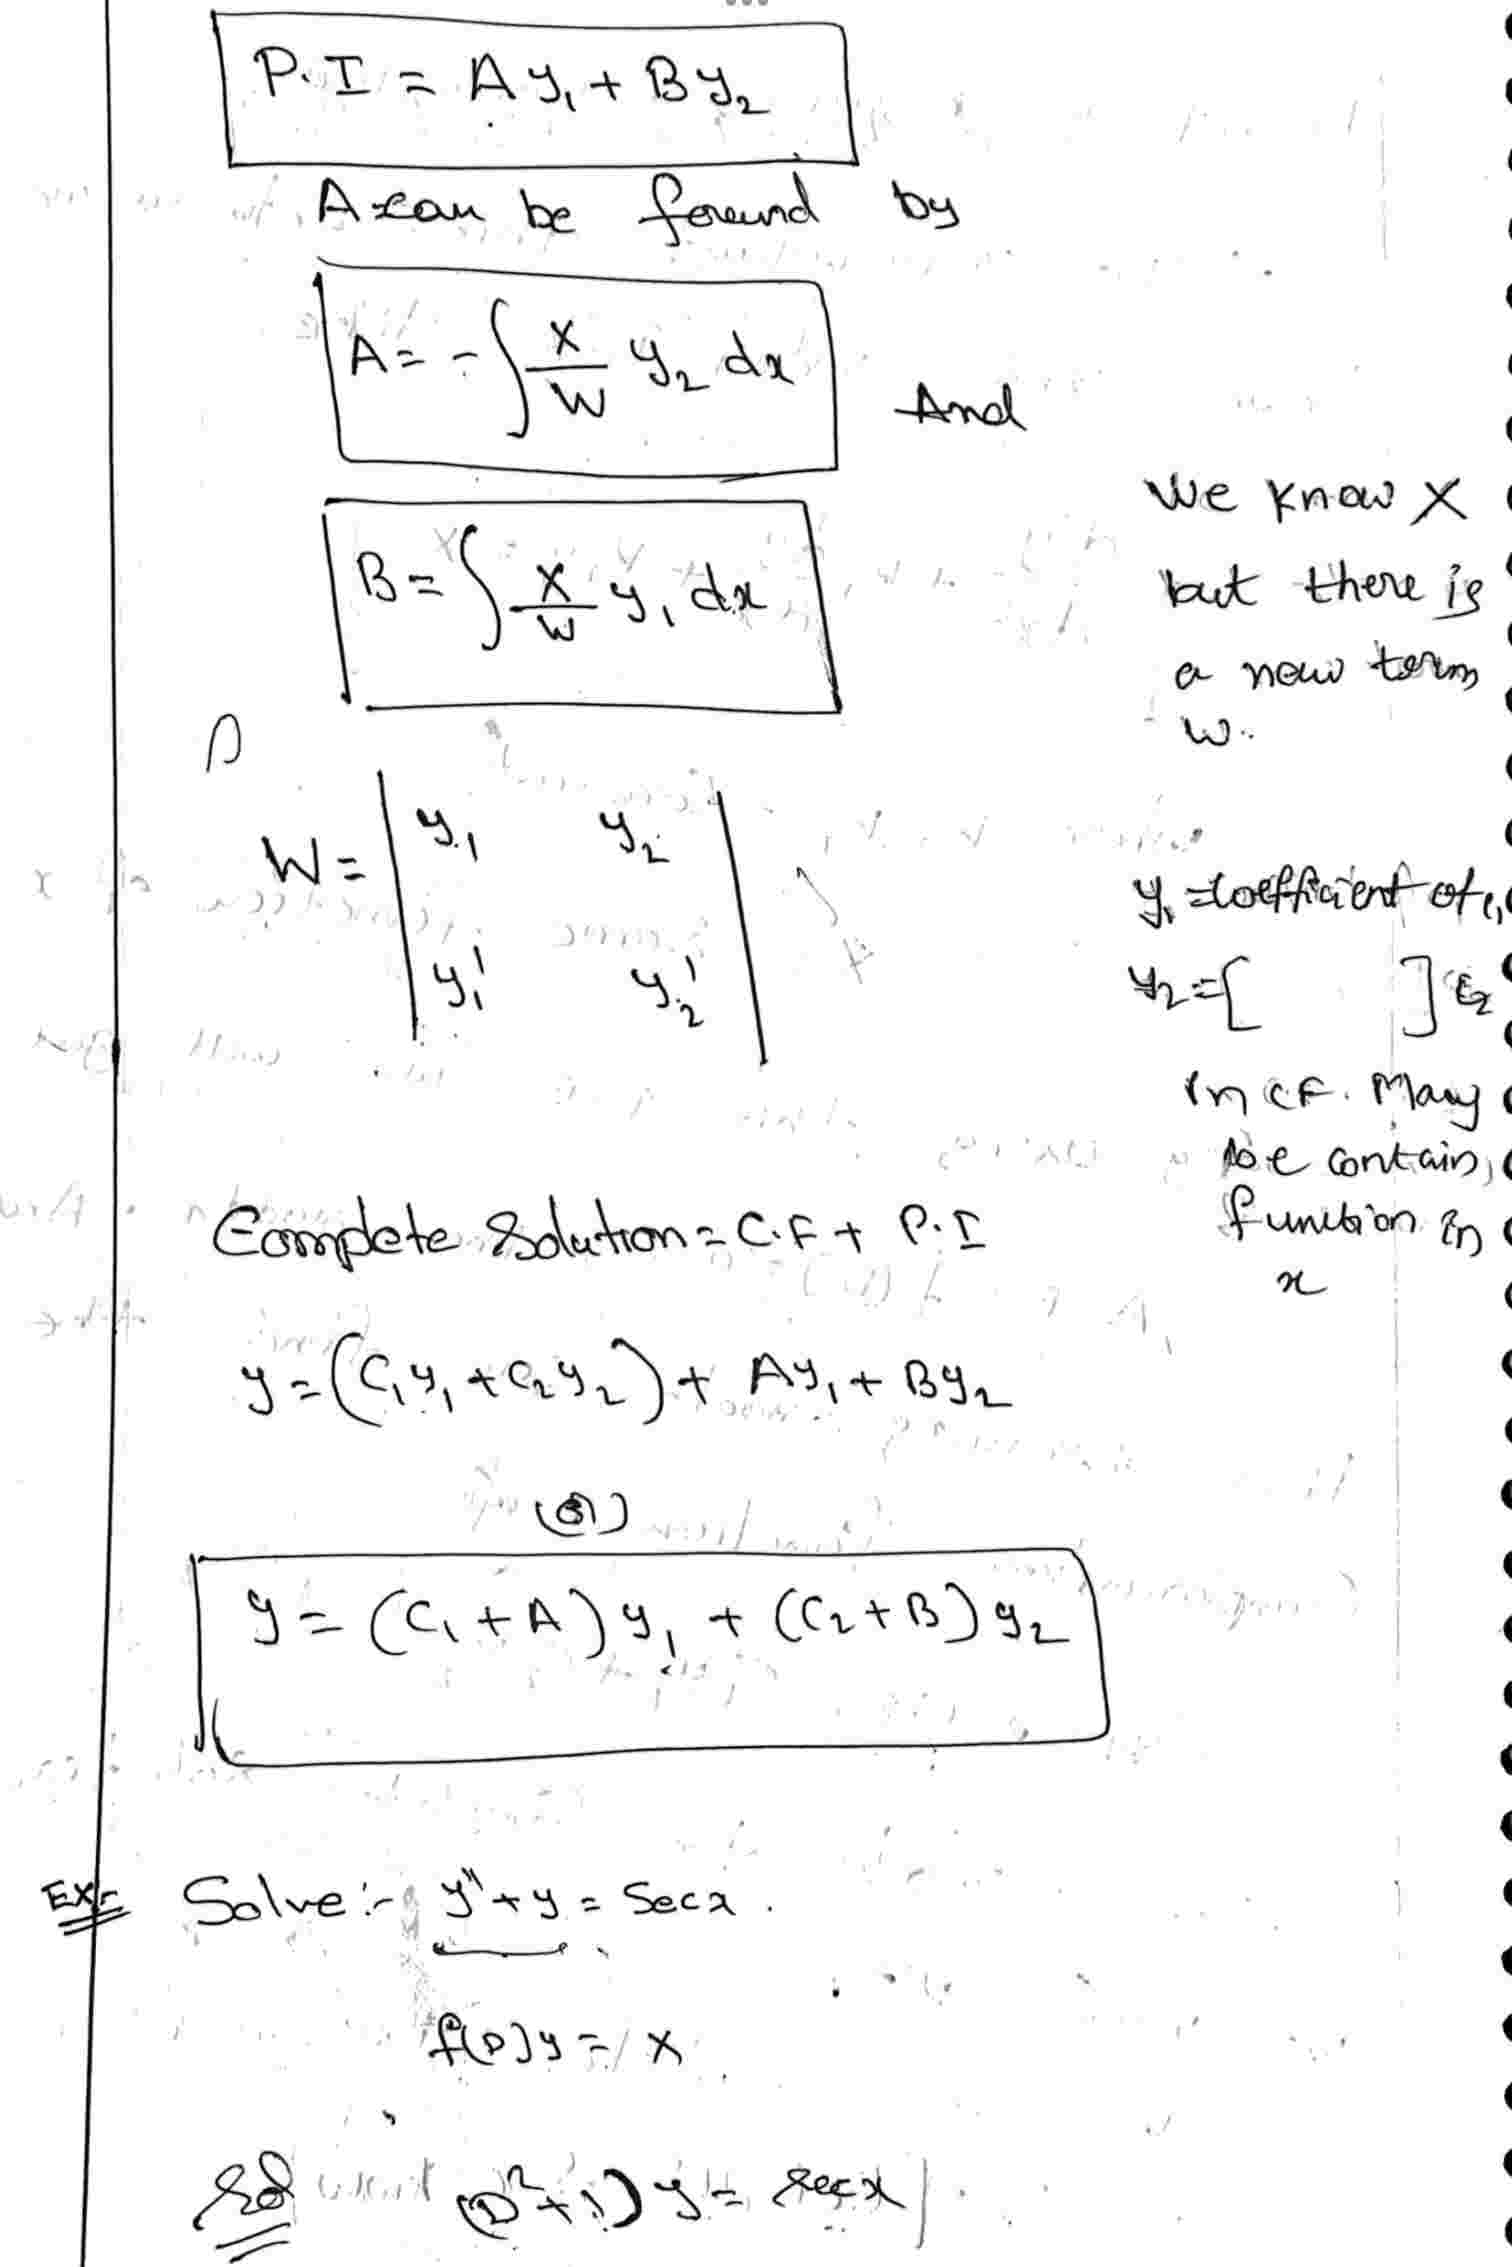 P.I = Ay₁ + By₂
A can be found by
A = - ∫ X/W y₂ dx And
B = ∫ X/W y₁ dx
We know X
but there is
a new term
W.
W = | y₁ y₂ |
| y₁' y₂' |
y₁ = coefficient of c₁
y₂ = [ ] c₂
in CF. May
be contain
function in
x
Complete Solution = C.F + P.I
y = (C₁y₁ + C₂y₂) + Ay₁ + By₂
(or)
y = (C₁ + A) y₁ + (C₂ + B) y₂
Ex:- Solve :- y'' + y = Sec x.
f(D) y = X
Sol (D² + 1) y = sec x